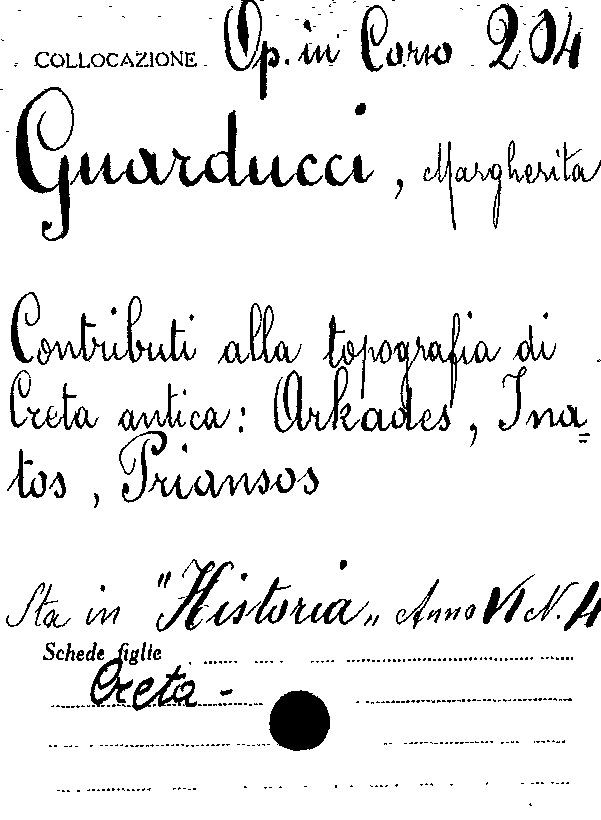 COLLOCAZIONE Op. in Corso 204
Guarducci, Margherita
Contributi alla topografia di
Creta antica: Arkades, Ina=
tos, Priansos
Sta in "Historia„ Anno VI N. 4
Schede figlie
Creta -